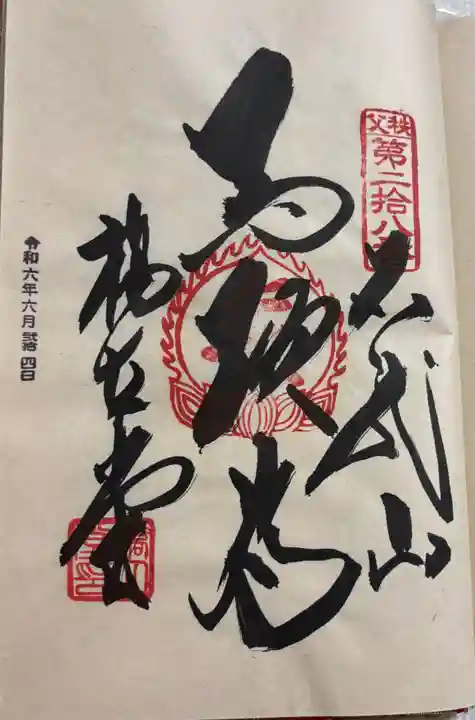 秩父
第二拾八番
石龍山
馬頭尊
橋立堂
令和六年六月弐拾四日